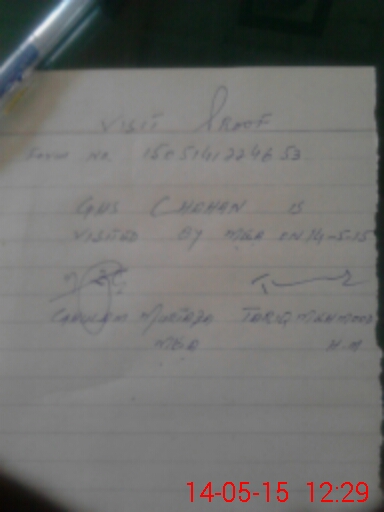 VISIT PROOF
Form No 1505141224653
GHS CHAHAN is
VISITED By MEA ON 14-5-15
GHULAM MURTAZA TARIQ MAHMOOD
MEA H.M
14-05-15 12:29